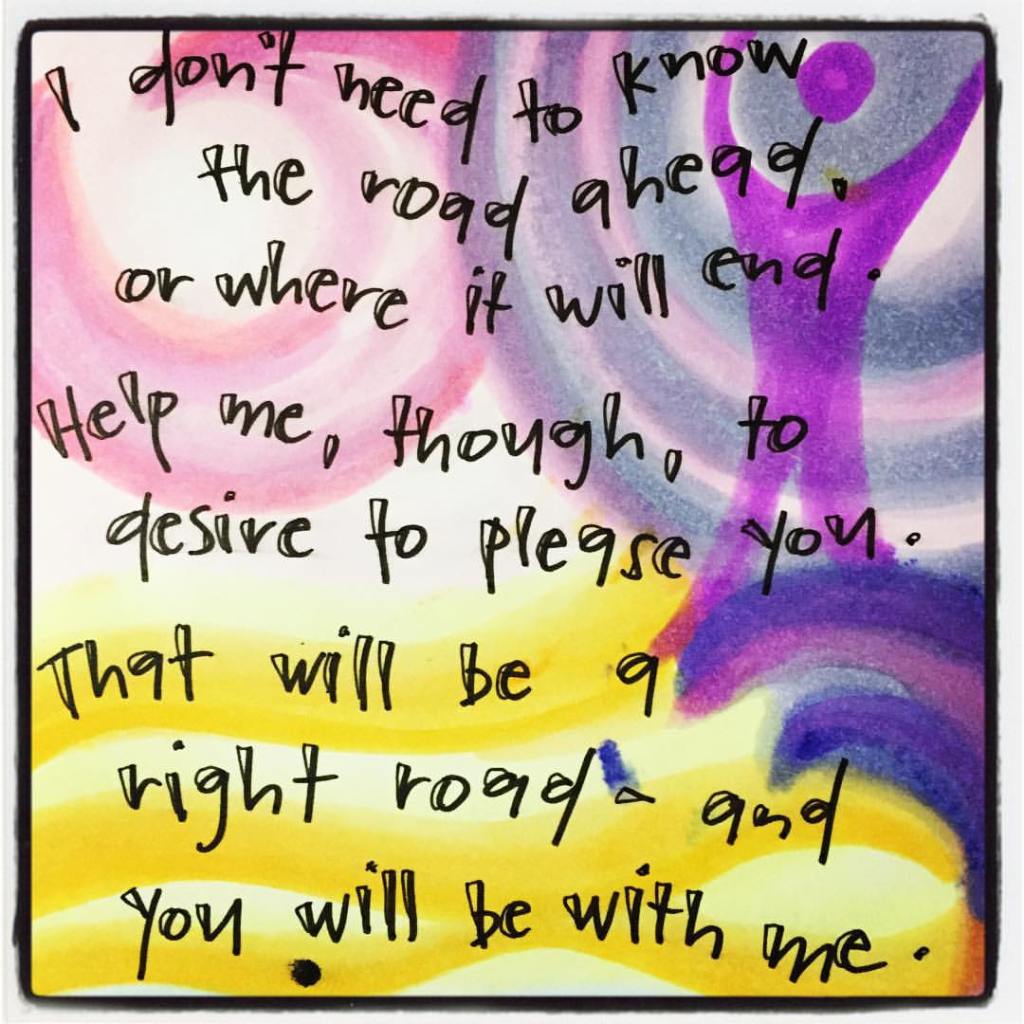 I don't need to know
the road ahead,
or where it will end.
Help me, though, to
desire to please you.
That will be a
right road - and
you will be with me.